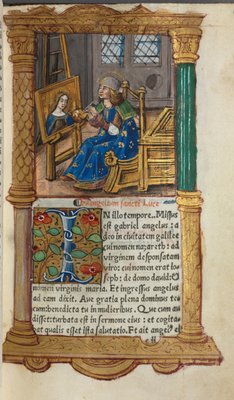 Evangelium sancti Luce
IN illo tempore. Missus
est gabriel angelus: a
deo in ciuitatem galilee
cui nomen nazareth: ad
virginem desponsatam
viro: cui nomen erat Io
seph: de domo dauid: et
nomen virginis maria. Et ingressus angelus
ad eam dixit. Aue gratia plena dominus te
cum: benedicta tu in mulieribus. Que cum au
disset: turbata est in sermone eius: et cogita
bat qualis esset ista salutatio. Et ait angelꝰ ei